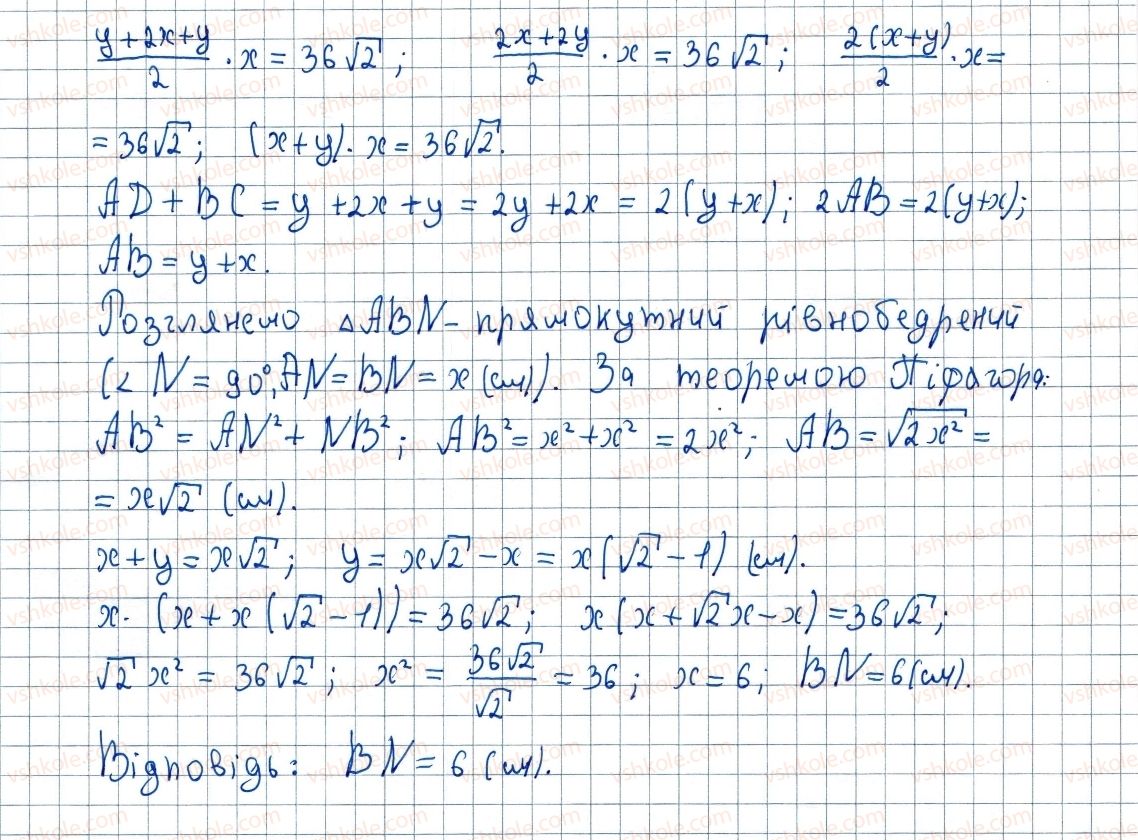 (y + 2x + y)/2 · x = 36√2; (2x + 2y)/2 · x = 36√2; 2(x+y)/2 · x =
= 36√2; (x + y) · x = 36√2.
AD + BC = y + 2x + y = 2y + 2x = 2(y + x); 2AB = 2(y+x);
AB = y + x.
Розглянемо △ABN - прямокутний рівнобедрений
(∠N = 90°, AN = BN = x (см)). За теоремою Піфагора:
AB² = AN² + NB²; AB² = x² + x² = 2x²; AB = √2x² =
= x√2 (см).
x + y = x√2; y = x√2 - x = x(√2 - 1) (см).
x · (x + x(√2 - 1)) = 36√2; x(x + √2x - x) = 36√2;
√2 x² = 36√2; x² = 36√2/√2 = 36; x = 6; BN = 6 (см).
Відповідь: BN = 6 (см).